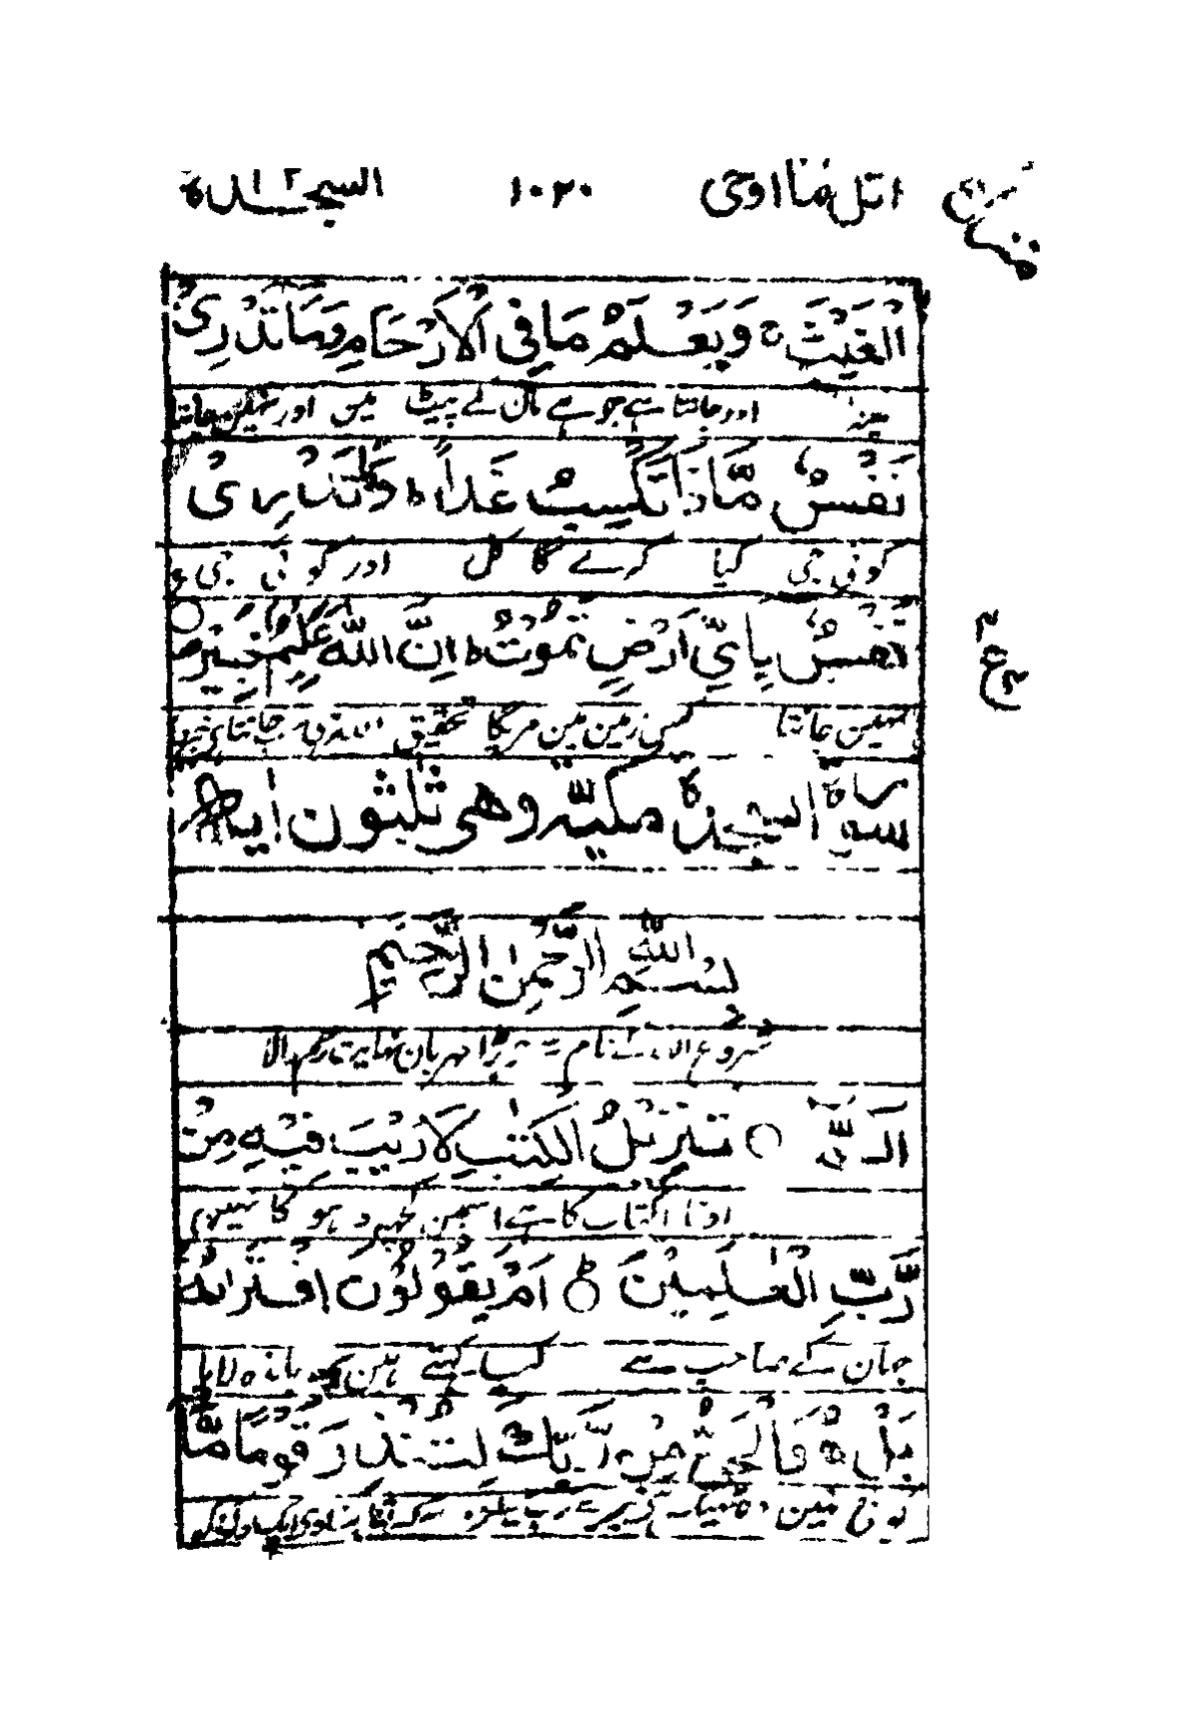 اتل ما اوحی ۱۰۲۰ السجدة ۳۲
الْغَيْثَ ۚ وَيَعْلَمُ مَا فِي الْاَرْحَامِ وَمَا تَدْرِيْ
مینہ اور جانتا ہے جو ہے مان کے پیٹ مین اور نہین جانتا
نَفْسٌ مَّاذَا تَكْسِبُ غَدًا ۭ وَمَا تَدْرِيْ
کوئی جی کیا کرے گا کل اور کوئی جی
نَفْسٌۢ بِاَيِّ اَرْضٍ تَمُوْتُ ۭ اِنَّ اللّٰهَ عَلِيْمٌ خَبِيْرٌ
نہین جانتا کس زمین مین مریگا تحقیق اللہ جانتا
سورة السجدة مكية وهي ثلثون اية
بِسْمِ اللّٰهِ الرَّحْمٰنِ الرَّحِيْمِ
شروع اللہ کے نام سے بڑا مہربان نہایت رحم والا
الٓمّٓ ○ تَنْزِيْلُ الْكِتٰبِ لَا رَيْبَ فِيْهِ مِنْ
اوتارا کتاب کا ہے اسمین کچھ
رَّبِّ الْعٰلَمِيْنَ ○ اَمْ يَقُوْلُوْنَ افْتَرٰىهُ
جہان کے صاحب سے کیا کہتے ہین یہ باندہ لایا
بَلْ هُوَ الْحَقُّ مِنْ رَّبِّكَ لِتُنْذِرَ قَوْمًا مَّا
کوئی نہین وہ ٹھیک ہے تیرے رب
ع